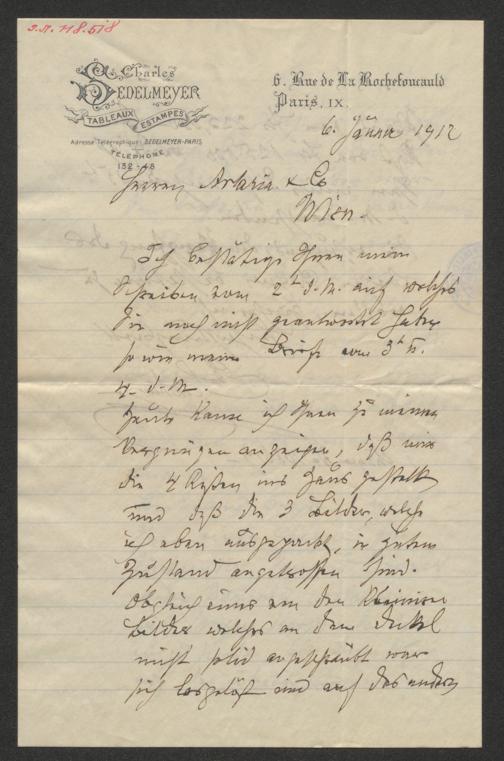 J.N. 118.518
Charles
SEDELMEYER
TABLEAUX ESTAMPES
Adresse Télégraphique: SEDELMEYER-PARIS
TÉLÉPHONE
132-48
6. Rue de La Rochefoucauld
Paris, IX.
6. Jänner 1912
Herren Artaria & Co
Wien.
Ich bestätige Ihnen mein
Schreiben vom 2t d.M. auf welches
Sie noch nicht geantwortet haben
so wie meine Briefe vom 3t u.
4. d.M.
Heute kann ich Ihnen zu meinem
Vergnügen anzeigen, daß mir
die 4 Kisten ins Haus gestellt
und daß die 3 Bilder, welche
ich eben ausgepackt, in gutem
Zustand angetroffen sind.
Obgleich eines von den kleinen
Bilder welches an dem Dekel
nicht solid angeschraubt war
sich losgelöst und auf das andere